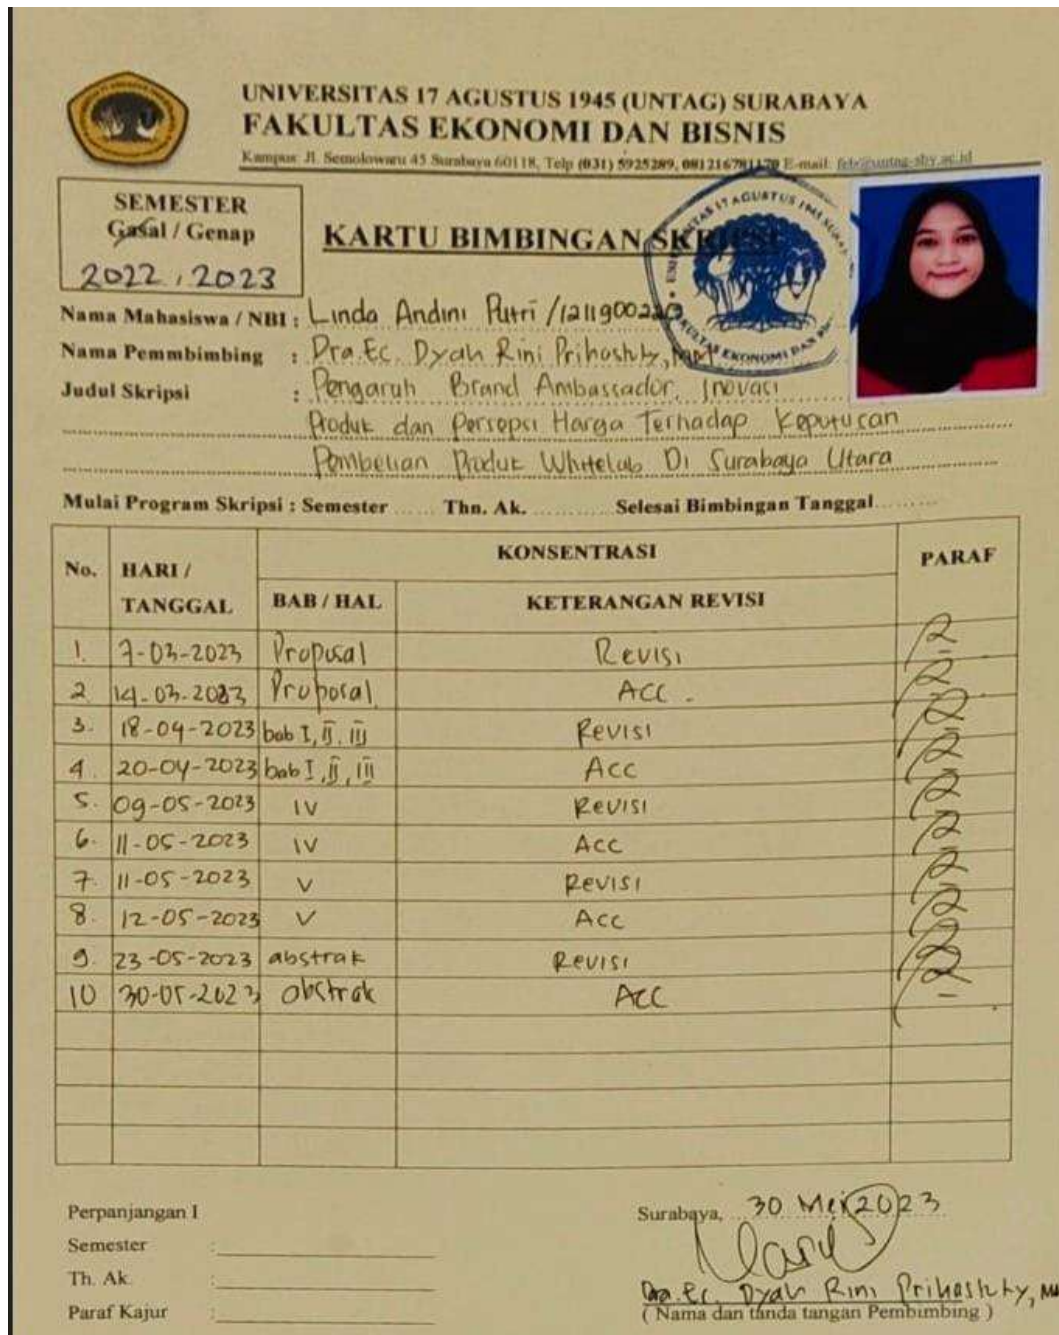 UNIVERSITAS 17 AGUSTUS 1945 (UNTAG) SURABAYA
FAKULTAS EKONOMI DAN BISNIS
Kampus: Jl. Semolowaru 45 Surabaya 60118, Telp (031) 5925289, 081216781170 E-mail: feb@untag-sby.ac.id
SEMESTER
Gasal / Genap
2022 / 2023
KARTU BIMBINGAN SKRIPSI
Nama Mahasiswa / NBI : Linda Andini Putri /
Nama Pemmbimbing : Dra.Ec. Dyah Rini Prihastuty, MM
Judul Skripsi : Pengaruh Brand Ambassador, Inovasi
Produk dan Persepsi Harga Terhadap Keputusan
Pembelian Produk Whitelab Di Surabaya Utara
Mulai Program Skripsi : Semester ...... Thn. Ak. ........... Selesai Bimbingan Tanggal.........
No. HARI / TANGGAL KONSENTRASI PARAF
BAB / HAL KETERANGAN REVISI
1. 7-03-2023 Proposal Revisi
2 14-03-2023 Proposal ACC -
3. 18-04-2023 bab I, II, III Revisi
4. 20-04-2023 bab I, II, III Acc
5. 09-05-2023 IV Revisi
6. 11-05-2023 IV Acc
7. 11-05-2023 V Revisi
8. 12-05-2023 V Acc
9. 23-05-2023 abstrak Revisi
10 30-05-2023 abstrak Acc
Perpanjangan I
Semester :
Th. Ak. :
Paraf Kajur :
Surabaya, 30 Mei 2023
Dra.Ec. Dyah Rini Prihastuty, MM
( Nama dan tanda tangan Pembimbing )